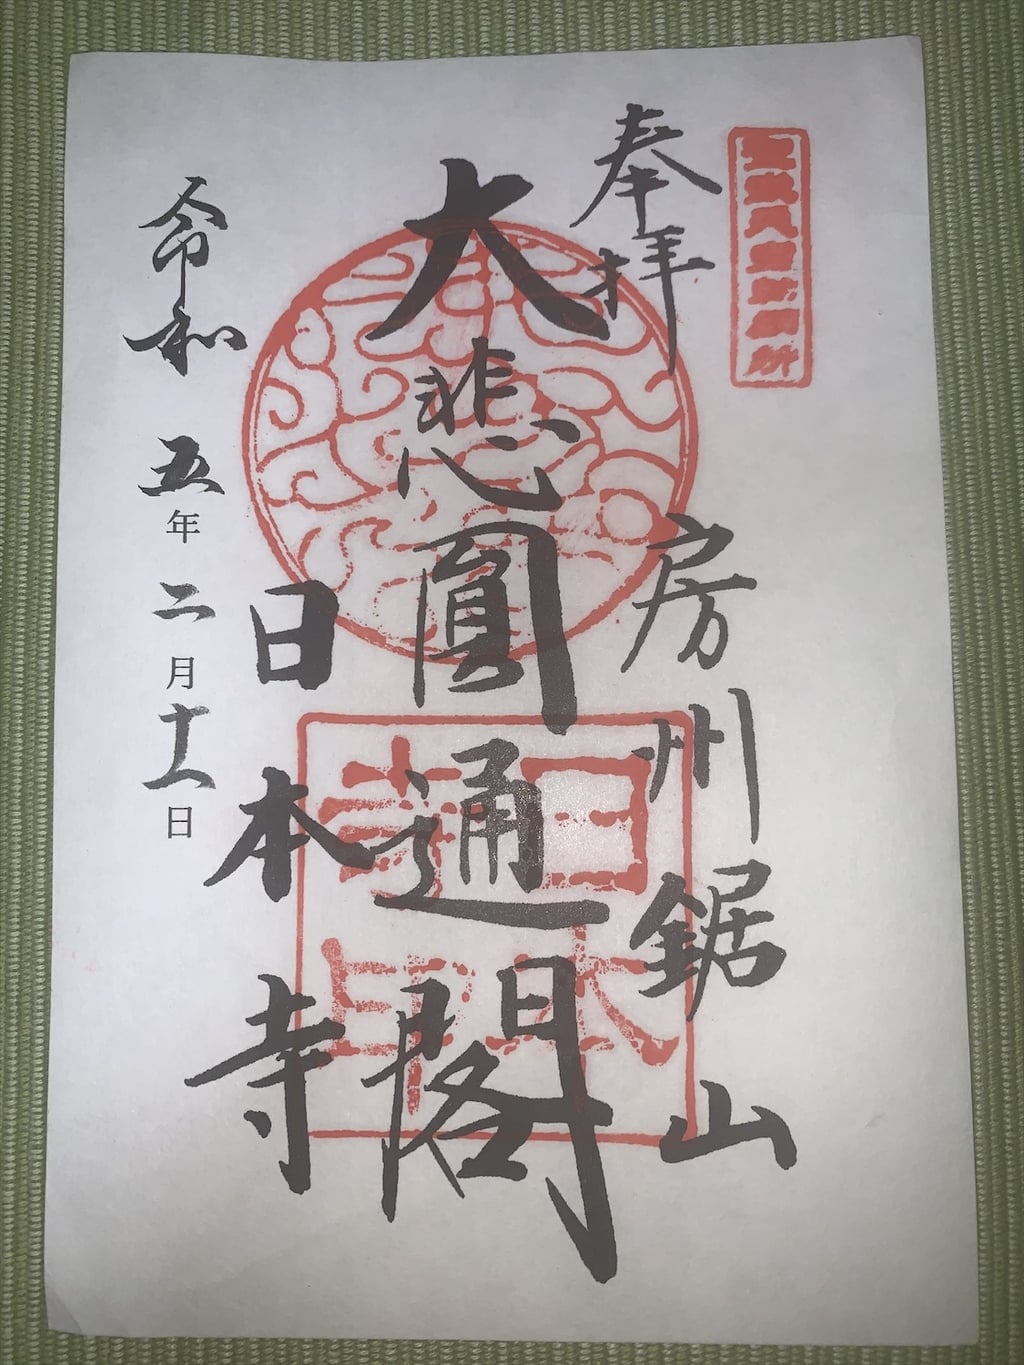 奉拝
房州鋸山
大悲圓通閣
日本寺
令和五年二月十一日
日本
寺印